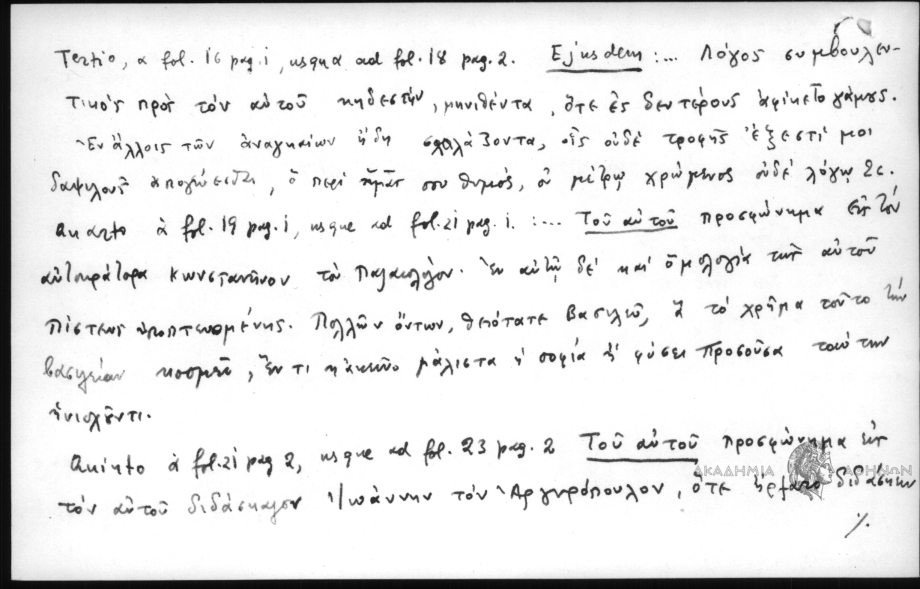 Tertio, a fol. 16 pag. 1, usqua ad fol. 18 pag. 2. Ejusdem :... Λόγος συμβουλευ-
τικός πρὸς τὸν αὐτοῦ κηδεστὴν, μηνιθέντα, ὅτε ἐς δευτέρους ἀφίκετο γάμους.
Ἐν ἄλλοις τῶν ἀναγκαίων ἤδη οἷς οὐδὲ τροφῆς ἔξεστί μοι
δαψιλοῦς ὁ περὶ ἡμᾶς σου θυμός, οὐ μέτρῳ χρώμενος οὐδὲ λόγῳ &c.
Quarto à fol. 19 pag. 1, usque ad fol. 21 pag. 1. :... Τοῦ αὐτοῦ προσφώνημα εἰς τὸν
αὐτοκράτορα Κωνσταντῖνον τὸν Παλαιολόγον. Ἐν αὐτῇ δὲ καὶ ὁμολογία τῆς αὐτοῦ
πίστεως ὑποπτευομένης. Πολλῶν ὄντων, θειότατε βασιλεῦ, ἃ τὸ χρῆμα τοῦτο τὴν
βασιλείαν κοσμεῖ, ἕν τι κἀκεῖνο μάλιστα ἡ σοφία ἡ φύσει προσοῦσα τῷ ταύτην
ἡνιοχοῦντι.
Quinto à fol. 21 pag 2, usque ad fol. 23 pag. 2 Τοῦ αὐτοῦ προσφώνημα εἰς
τὸν αὐτοῦ διδάσκαλον Ἰωάννην τὸν Ἀργυρόπουλον, ὅτε ἤρξατο διδάσκειν
ΑΚΑΔΗΜΙΑ ΑΘΗΝΩΝ
./.